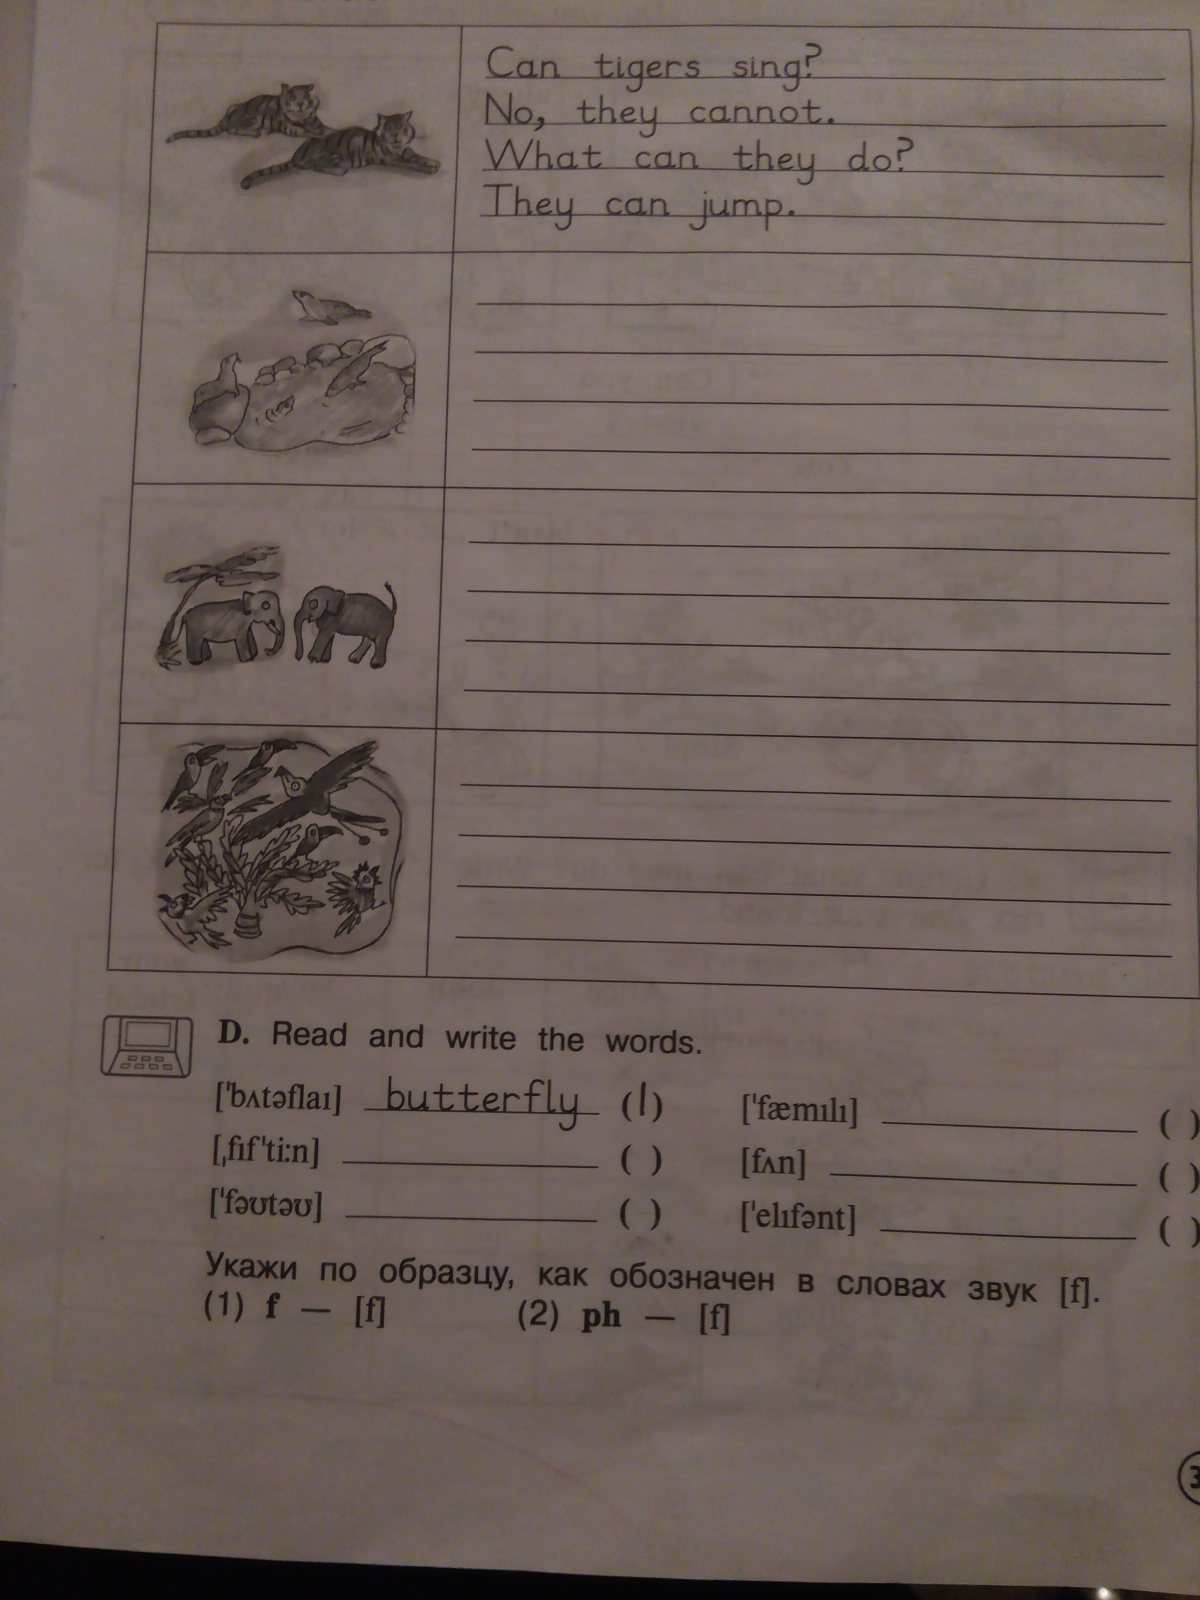 Can tigers sing?
No, they cannot.
What can they do?
They can jump.
D. Read and write the words.
[ˈbʌtəflaɪ] butterfly (1) [ˈfæmɪlɪ] ( )
[ˌfɪfˈtiːn] ( ) [fʌn] ( )
[ˈfəʊtəʊ] ( ) [ˈelɪfənt] ( )
Укажи по образцу, как обозначен в словах звук [f].
(1) f — [f] (2) ph — [f]